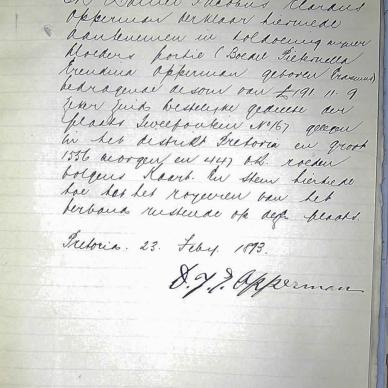 Ik Daniel Jacobus Erasmus
Opperman verklaar hiermede
aantenemen in voldoening mijner
moeders portie (Boedel Pieternella
Opperman geboren Erasmus)
bedragende de som van £191.11.9
zeker zuid westelijke gedeelte der
plaats Zweefontein No 167 gelegen
in het distrikt Pretoria en groot
1556 morgen en 447 vtt. roeden
volgens Kaart. En stem hiermede
toe tot het royeeren van het
verband rustende op deze plaats.
Pretoria. 23. Feby. 1893.
D. J. E. Opperman